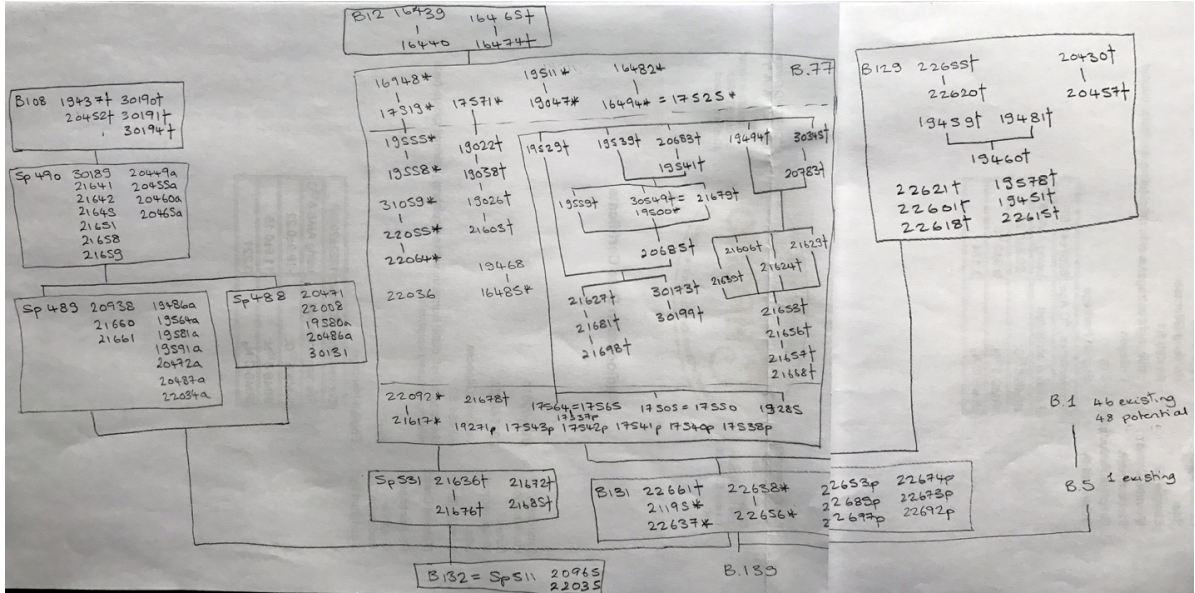 B12 16439 16465†
16440 16474†
B108 19437† 30190†
20452† 30191†
30194†
Sp490 30189 20449a
21641 20455a
21642 20460a
21645 20465a
21651
21658
21659
Sp489 20938 19486a
21660 19564a
21661 19581a
19591a
20472a
20487a
22034a
Sp488 20471
22008
19580a
20486a
30131
B.77
16948* 19511* 16482*
17519* 17571* 19047* 16494* = 17525*
19555* 19022† 19529† 19539† 20683† 19494† 30345†
19558* 19038† 19541† 20783†
31059* 19026† 19559† 30549† = 21679†
19500*
22055* 21603† 20685† 21606† 21629†
22064* 19468 21639† 21624†
22036 16485* 21627† 30173† 21653†
21681† 30199† 21656†
21698† 21657†
21668†
22092* 21678† 17564 = 17565 17505 = 17550 19285
17537p
21617* 19271p 17543p 17542p 17541p 17540p 17538p
B129 22655† 20430†
22620† 20457†
19459† 19481†
19460†
22621† 19578†
22601† 19451†
22618† 22615†
B.1 46 existing
48 potential
B.5 1 existing
Sp531 21636† 21672†
21676† 21685†
B131 22661† 22638* 22653p 22674p
21195* 22689p 22673p
22637* 22656* 22697p 22692p
B132 = Sp511 20965
22035
B.139